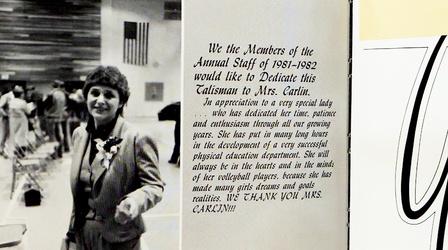 We the Members of the
Annual Staff of 1981-1982
would like to Dedicate this
Talisman to Mrs. Carlin.
In appreciation to a very special lady
. . . who has dedicated her time, patience
and enthusiasm through all our growing
years. She has put in many long hours
in the development of a very successful
physical education department. She will
always be in the hearts and in the minds
of her volleyball players, because she has
made many girls dreams and goals
realities. WE THANK YOU MRS.
CARLIN!!!